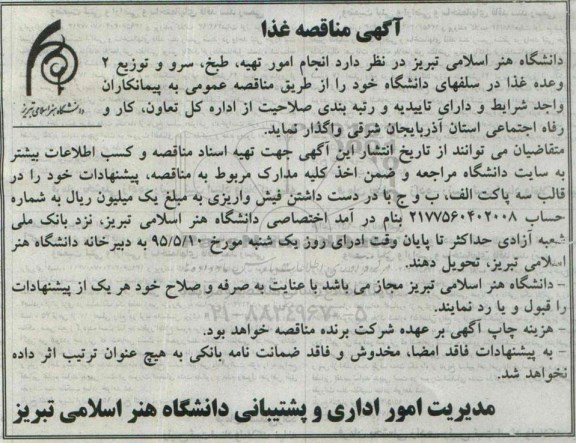 آگهی مناقصه غذا
دانشگاه هنر اسلامی تبریز
دانشگاه هنر اسلامی تبریز در نظر دارد انجام امور تهیه، طبخ، سرو و توزیع ۲
وعده غذا در سلفهای دانشگاه خود را از طریق مناقصه عمومی به پیمانکاران
واجد شرایط و دارای تاییدیه و رتبه بندی صلاحیت از اداره کل تعاون، کار و
رفاه اجتماعی استان آذربایجان شرقی واگذار نماید.
متقاضیان می توانند از تاریخ انتشار این آگهی جهت تهیه اسناد مناقصه و کسب اطلاعات بیشتر
به سایت دانشگاه مراجعه و ضمن اخذ کلیه مدارک مربوط به مناقصه، پیشنهادات خود را در
قالب سه پاکت الف، ب و ج با در دست داشتن فیش واریزی به مبلغ یک میلیون ریال به شماره
حساب ۲۱۷۷۵۶۰۴۰۲۰۰۸ بنام در آمد اختصاصی دانشگاه هنر اسلامی تبریز، نزد بانک ملی
شعبه آزادی حداکثر تا پایان وقت ادرای روز یک شنبه مورخ ۹۵/۵/۱۰ به دبیرخانه دانشگاه هنر
اسلامی تبریز، تحویل دهند.
- دانشگاه هنر اسلامی تبریز مجاز می باشد با عنایت به صرفه و صلاح خود هر یک از پیشنهادات
را قبول و یا رد نمایند.
- هزینه چاپ آگهی بر عهده شرکت برنده مناقصه خواهد بود.
- به پیشنهادات فاقد امضا، مخدوش و فاقد ضمانت نامه بانکی به هیچ عنوان ترتیب اثر داده
نخواهد شد.
مدیریت امور اداری و پشتیبانی دانشگاه هنر اسلامی تبریز